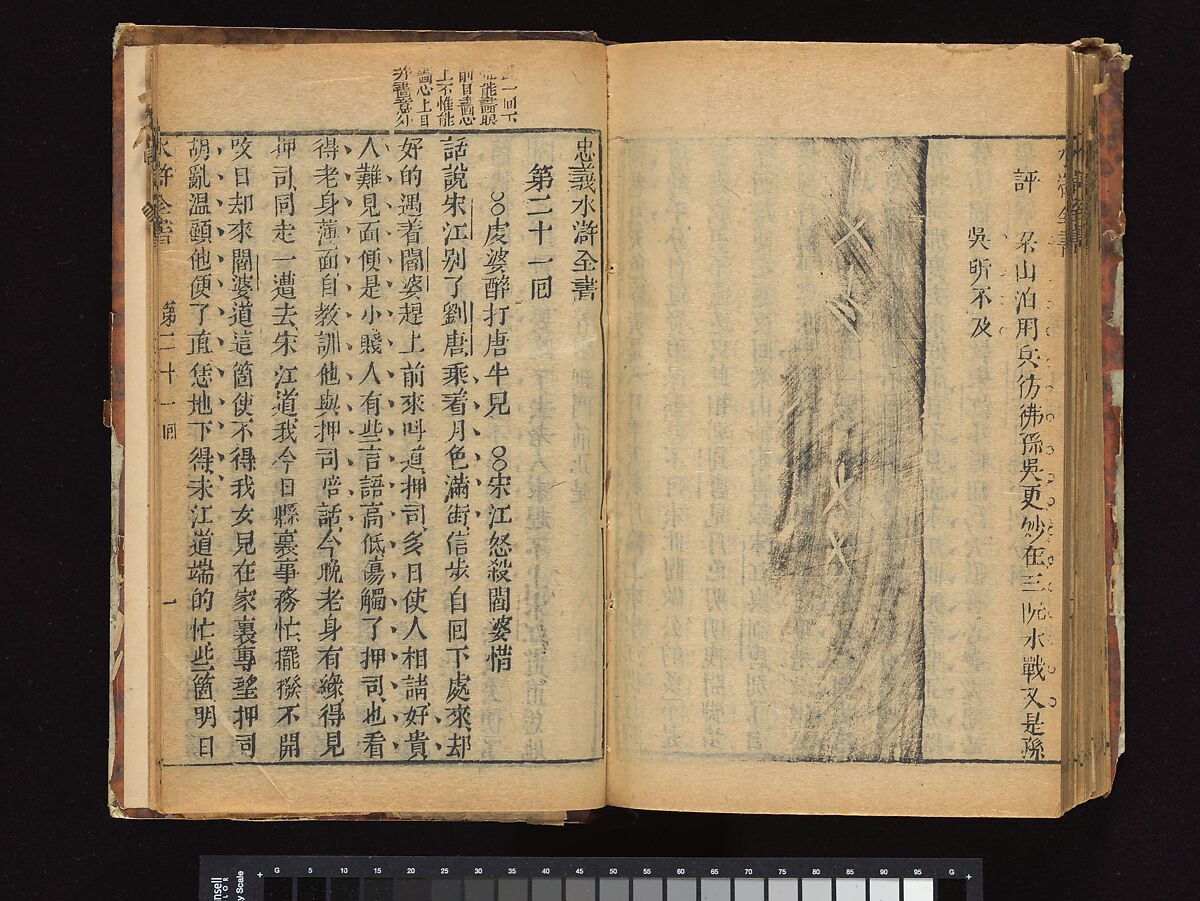 評 梁山泊用兵彷彿孫吳更妙在三阮水戰又是孫
吳所不及
一回不
能畵眼
前且畵心
上不惟能
畵心上且
并畵意外
忠義水滸全書
第二十一回
○○虔婆醉打唐牛兒 ○○宋江怒殺閻婆惜
話說宋江別了劉唐、乘着月色滿街、信步自回下處來、却
好的遇着閻婆、趕上前來呌道、押司、多日使人相請、好貴
人難見面、便是小賤人有些言語高低、傷觸了押司、也看
得老身薄面、自教訓他與押司陪話、今晚老身有緣、得見
押司、同走一遭去、宋江道、我今日縣裏事務忙、擺撥不開
改日却來、閻婆道、這箇使不得、我女兒在家裏專望、押司
胡亂溫顧他便了、直恁地下得、宋江道、端的忙些箇、明日
水滸全書
第二十一回
一